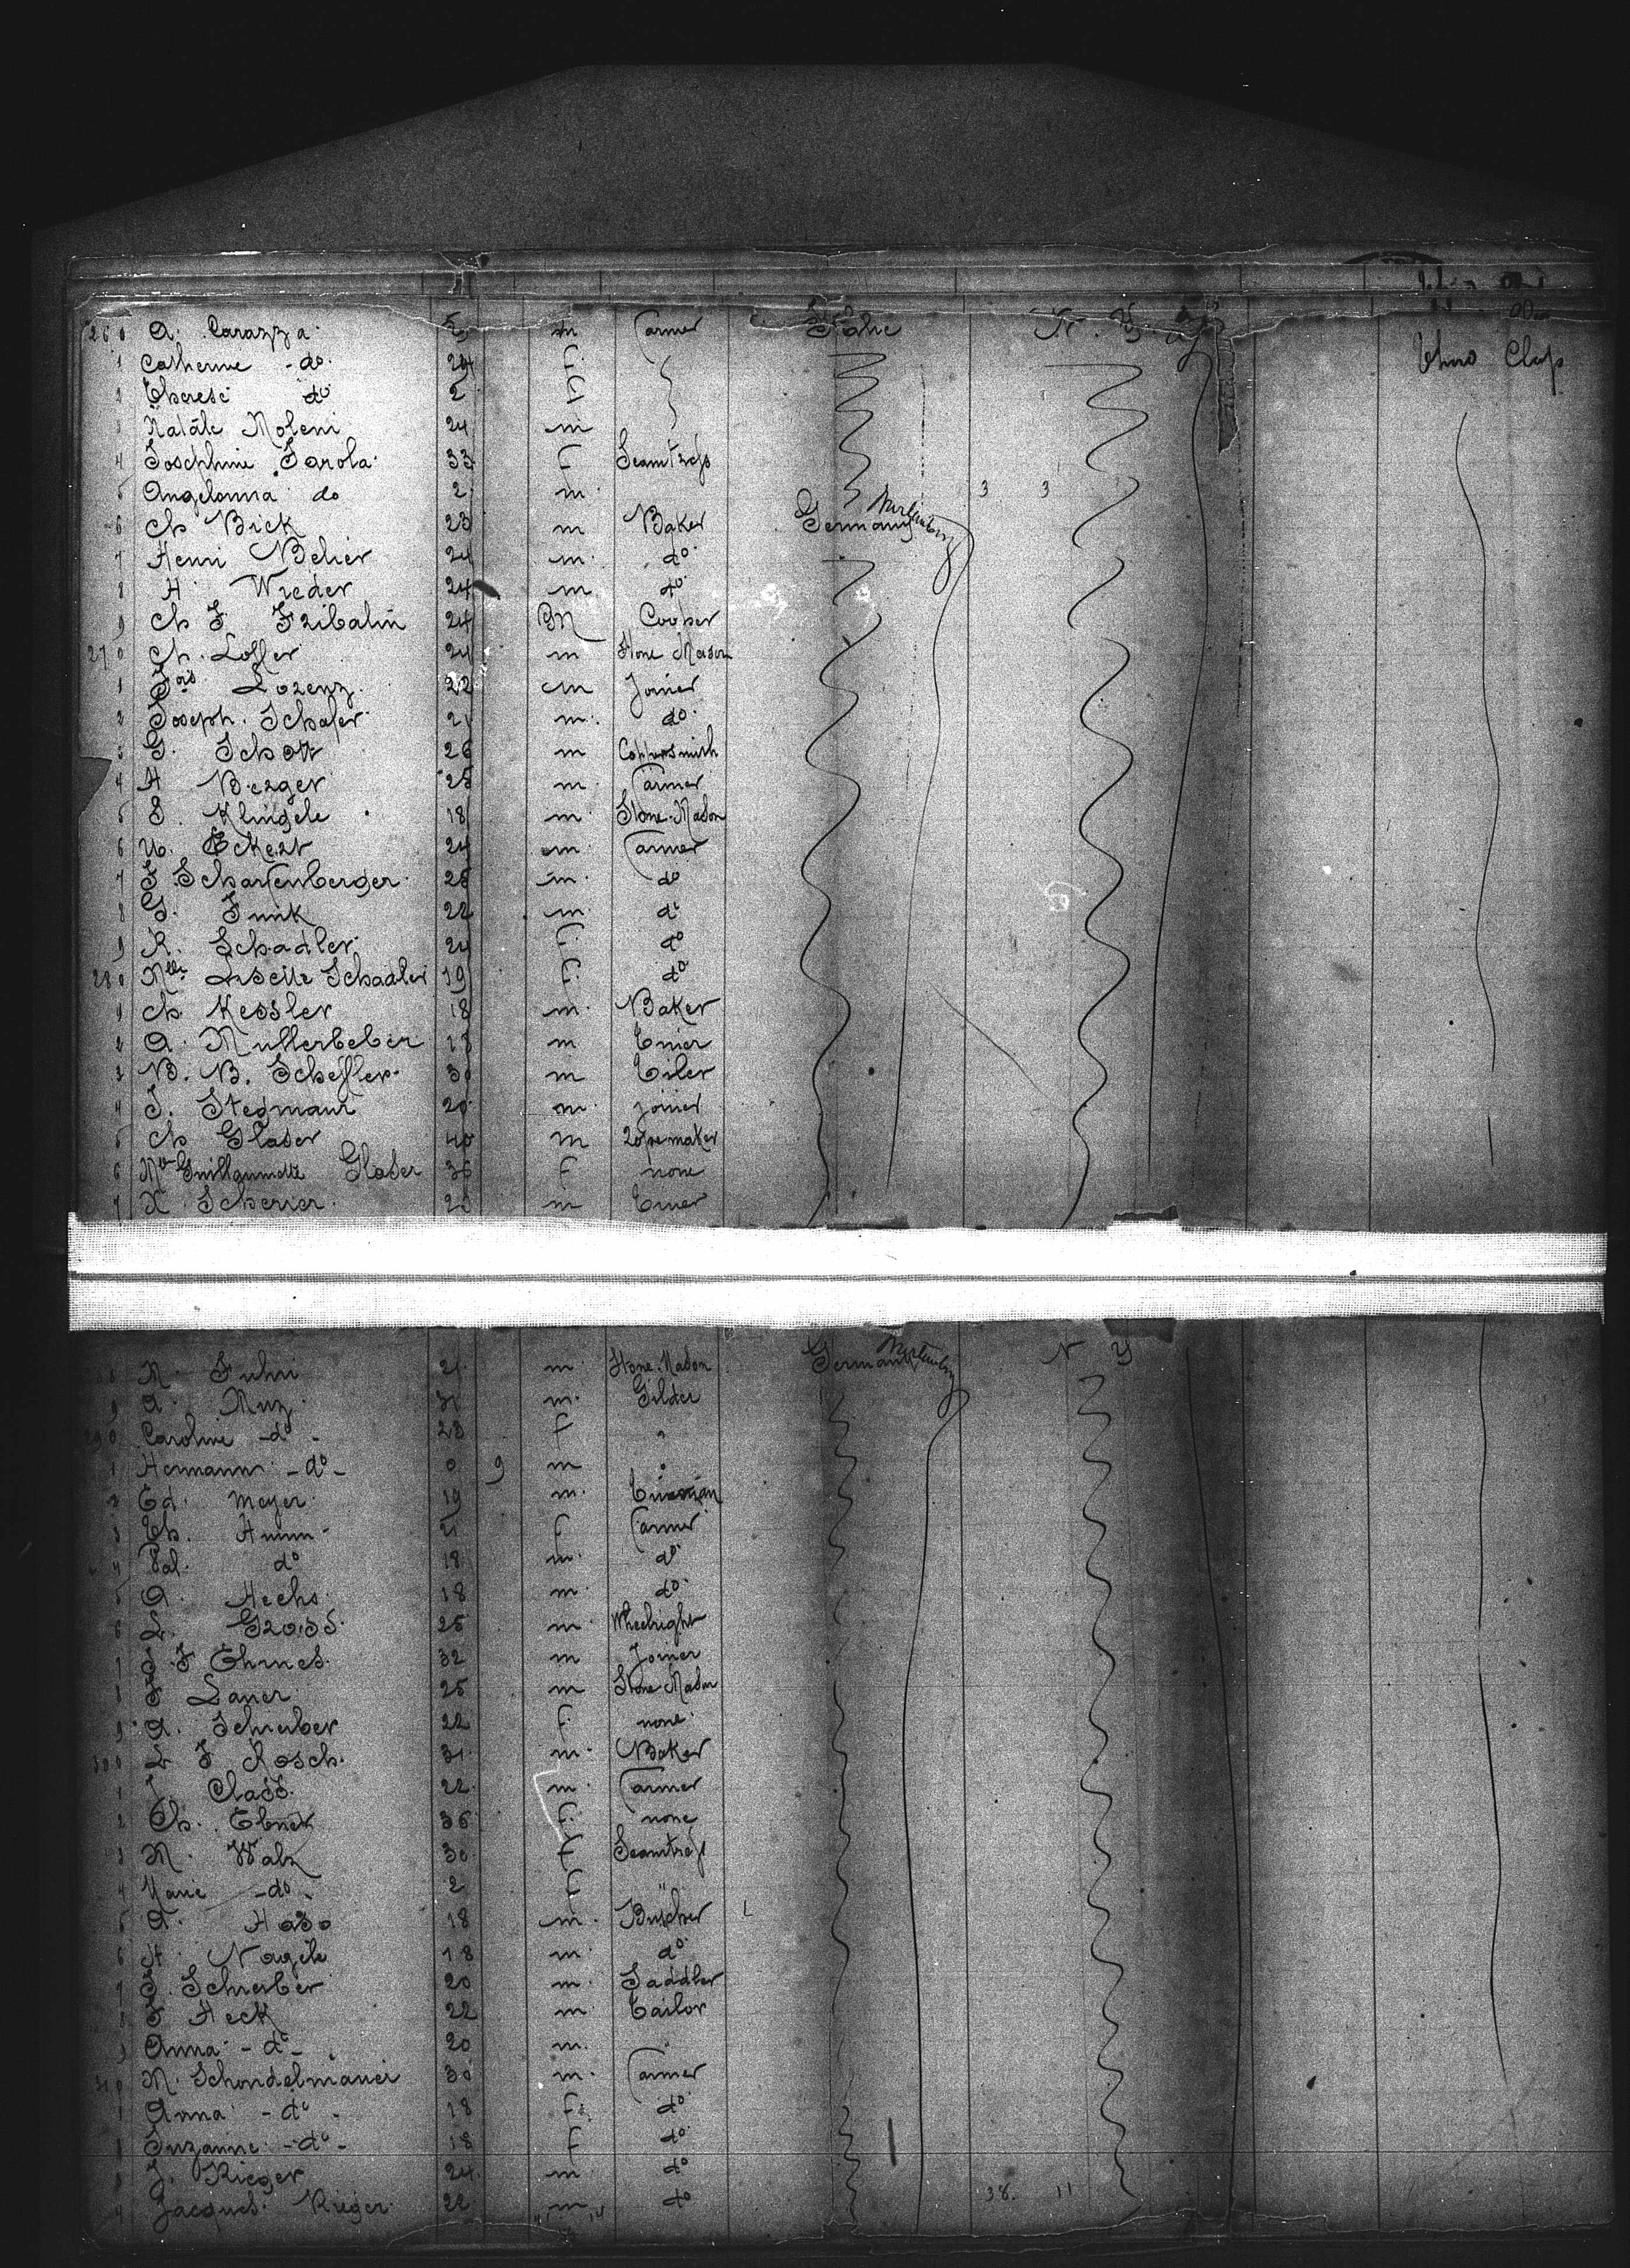 260 A. Carazza m Farmer Italie N. Y.
1 Catherine - do. 24 F. Third Class
2 Therese do 2 F
3 Natale Moleni 24 m
4 Josephine Farola 33 F Seamtress
5 Angelonna do 2 m. 3 3
6 Ch Bick 23 m Baker Germany Wurtemberg
7 Henri Belier 24 m. do.
8 A Wieder 24 m do
9 Ch F. Fribalin 24 M Cooper
270 Ch. Loffer 24 m Stone Mason
1 Fois Lorenz 22 m Joiner
2 Joseph. Schafer 21 m. do.
3 G. Schott 26 m Coppersmith
4 A Berger 25 m. Farmer
5 S. Klingele 18 m. Stone-Mason
6 W. Eckert 24 m. Farmer
7 F. Schartenberger 28 m. do
8 G. Funk 22 m. do
9 R. Schadler 24 F. do
280 Mlle Lisette Schadler 19 F. do
1 Ch Kessler 18 m. Baker
2 A. Mullerbeber 18 m
3 B. B. Scheffler 30 m
4 J. Stegmaur 20 m. joiner
5 Ch Glaser 40 m Ropemaker
6 Me Guillaumette Glaser 36 F none
7 X Scherrer 20 m
8 N. Fuhri 21 m. Stone-Mason Germany Wurtemberg N Y
9 A. Muz 31 m. Gilder
290 Caroline - do - 28 F "
1 Hermann - do - 0 9 m "
2 Ed. Meyer 19 m.
3 Ch. Humm 21 F Farmer
4 Pal. do 18 m. do
5 A. Hechs 18 m do.
6 L. Gross 25 m. Wheelright
7 J F Ehmes. 32 m Joiner
8 F Lauer 25 m Stone Mason
9 A. Schreiber 22 F. none.
300 L F Rosch. 31 m. Baker
1 J. Class. 22. m. Farmer
2 Ch. Ebner 36 F. none
3 M. Walz 30 F Seamtress
4 Marie - do - 2 F "
5 A. Haso 18 m. Butcher
6 H. Nagele 18 m. do.
7 F. Schreiber 20 m. Saddler
8 F Heck 22 m. Tailor
9 Anna - do - 20 m. "
310 M. Schondelmaier 30 m. Farmer
1 Anna - do - 18 F. do
2 Suzanne - do - 18 F do.
3 J. Rieger 24. m do
4 Jacques. Rieger 22 m do 38. 11